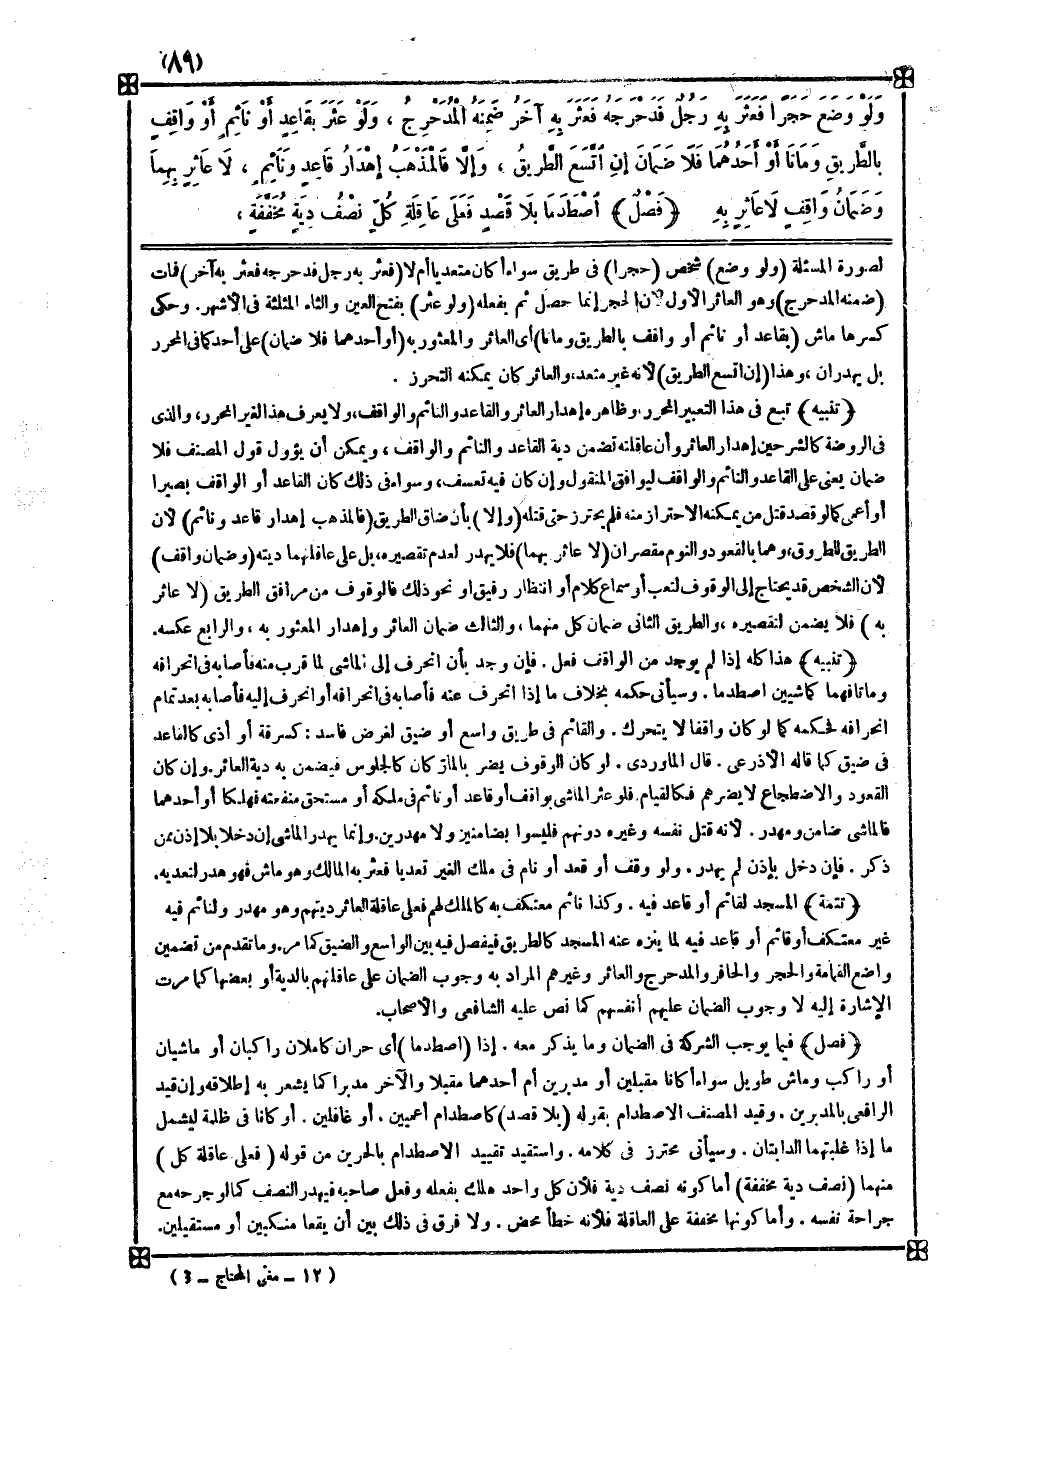 (٨٩)
وَلَوْ وَضَعَ حَجَرًا فَعَثَرَ بِهِ رَجُلٌ فَدَحْرَجَهُ فَعَثَرَ بِهِ آخَرُ ضَمِنَهُ الْمُدَحْرِجُ ، وَلَوْ عَثَرَ بِقَاعِدٍ أَوْ نَائِمٍ أَوْ وَاقِفٍ
بِالطَّرِيقِ وَمَاتَا أَوْ أَحَدُهُمَا فَلَا ضَمَانَ إِنِ اتَّسَعَ الطَّرِيقُ ، وَإِلَّا فَالْمَذْهَبُ إِهْدَارُ قَاعِدٍ وَنَائِمٍ ، لَا عَاثِرٍ بِهِمَا
وَضَمَانُ وَاقِفٍ لَا عَاثِرٍ بِهِ ﴿فَصْلٌ﴾ اصْطَدَمَا بِلَا قَصْدٍ فَعَلَى عَاقِلَةِ كُلٍّ نِصْفُ دِيَةٍ مُخَفَّفَةٍ ،
لصورة المسئلة (ولو وضع) شخص (حجرا) فى طريق سواء أكان متعديا أم لا (فعثر به رجل فدحرجه فعثر به آخر) فمات
(ضمنه المدحرج) وهو العاثر الأول لأن الحجر إنما حصل ثم بفعله (ولو عثر) بفتح العين والثاء المثلثة فى الأشهر. وحكى
كسرها ماش (بقاعد أو نائم أو واقف بالطريق وماتا) أى العاثر والمعثور به (أو أحدهما فلا ضمان) على أحد كما فى المحرر
بل يهدران ، وهذا (إن اتسع الطريق) لأنه غير متعد، والعاثر كان يمكنه التحرز .
﴿تنبيه﴾ تبع فى هذا التعبير المحرر، وظاهره إهدار العاثر والقاعد والنائم والواقف، ولا يعرف هذا لغير المحرر، والذى
فى الروضة كالشرحين إهدار العاثر وأن عاقلته تضمن دية القاعد والنائم والواقف ، ويمكن أن يؤول قول المصنف فلا
ضمان يعنى على القاعد والنائم والواقف ليوافق المنقول وإن كان فيه تعسف، وسواء فى ذلك كان القاعد أو الواقف بصيرا
أو أعمى كما لو قصد قتل من يمكنه الاحتراز منه فلم يحترز حتى قتله (وإلا) بأن ضاق الطريق (فالمذهب إهدار قاعد ونائم) لأن
الطريق للطروق، وهما بالقعود والنوم مقصران (لا عاثر بهما) فلا يهدر لعدم تقصيره، بل على عاقلتهما ديته (وضمان واقف)
لأن الشخص قد يحتاج إلى الوقوف لتعب أو سماع كلام أو انتظار رفيق أو نحو ذلك فالوقوف من مرافق الطريق (لا عاثر
به) فلا يضمن لتقصيره ، والطريق الثانى ضمان كل منهما ، والثالث ضمان العاثر وإهدار المعثور به ، والرابع عكسه.
﴿تنبيه﴾ هذا كله إذا لم يوجد من الواقف فعل . فإن وجد بأن انحرف إلى الماشى لما قرب منه فأصابه فى انحرافه
وماتا فهما كماشيين اصطدما . وسيأتى حكمه بخلاف ما إذا انحرف عنه فأصابه فى انحرافه أو انحرف إليه فأصابه بعد تمام
انحرافه فحكمه كما لو كان واقفا لا يتحرك . والقائم فى طريق واسع أو ضيق لغرض فاسد : كسرقة أو أذى كالقاعد
فى ضيق كما قاله الأذرعى . قال الماوردى . لو كان الوقوف يضر بالمار كان كالجلوس فيضمن به دية العاثر. وإن كان
القعود والاضطجاع لا يضر هم فكالقيام. فلو عثر الماشى بواقف أو قاعد أو نائم فى ملكه أو مستحق منفعته فهلكا أو أحدهما
فالماشى ضامن ومهدر . لأنه قتل نفسه وغيره دونهم فليسوا بضامنين ولا مهدرين. وإنما يهدر الماشى إن دخل بلا إذن ممن
ذكر . فإن دخل بإذن لم يهدر . ولو وقف أو قعد أو نام فى ملك الغير تعديا فعثر به المالك وهو ماش فهو هدر لتعديه.
﴿تتمة﴾ المسجد لقائم أو قاعد فيه . وكذا نائم معتكف به كالملك لهم فعلى عاقلة العاثر ديتهم وهو مهدر ولنائم فيه
غير معتكف أو قائم أو قاعد فيه لما ينزه عنه المسجد كالطريق فيفصل فيه بين الواسع والضيق كما مر، وما تقدم من تضمين
واضع القمامة والحجر والحافر والمدحرج والعاثر وغيرهم المراد به وجوب الضمان على عاقلتهم بالدية أو بعضها كما مرت
الإشارة إليه لا وجوب الضمان عليهم أنفسهم كما نص عليه الشافعى والأصحاب.
﴿فصل﴾ فيما يوجب الشركة فى الضمان وما يذكر معه . إذا (اصطدما) أى حران كاملان راكبان أو ماشيان
أو راكب وماش طويل سواء أكانا مقبلين أو مدبرين أم أحدهما مقبلا والآخر مدبرا كما يشعر به إطلاقه وإن قيد
الرافعى بالمدبرين . وقيد المصنف الاصطدام بقوله (بلا قصد) كاصطدام أعميين . أو غافلين . أو كانا فى ظلمة ليشمل
ما إذا غلبتهما الدابتان . وسيأتى محترز فى كلامه . واستفيد تقييد الاصطدام بالحرين من قوله (فعلى عاقلة كل)
منهما (نصف دية مخففة) أما كونه نصف دية فلأن كل واحد هلك بفعله وفعل صاحبه فيهدر النصف كما لو جرحه مع
جراحة نفسه . وأما كونها مخففة على العاقلة فلأنه خطأ محض . ولا فرق فى ذلك بين أن يقعا منكبين أو مستقيلين.
(١٢ - مغنى المحتاج - ٤)